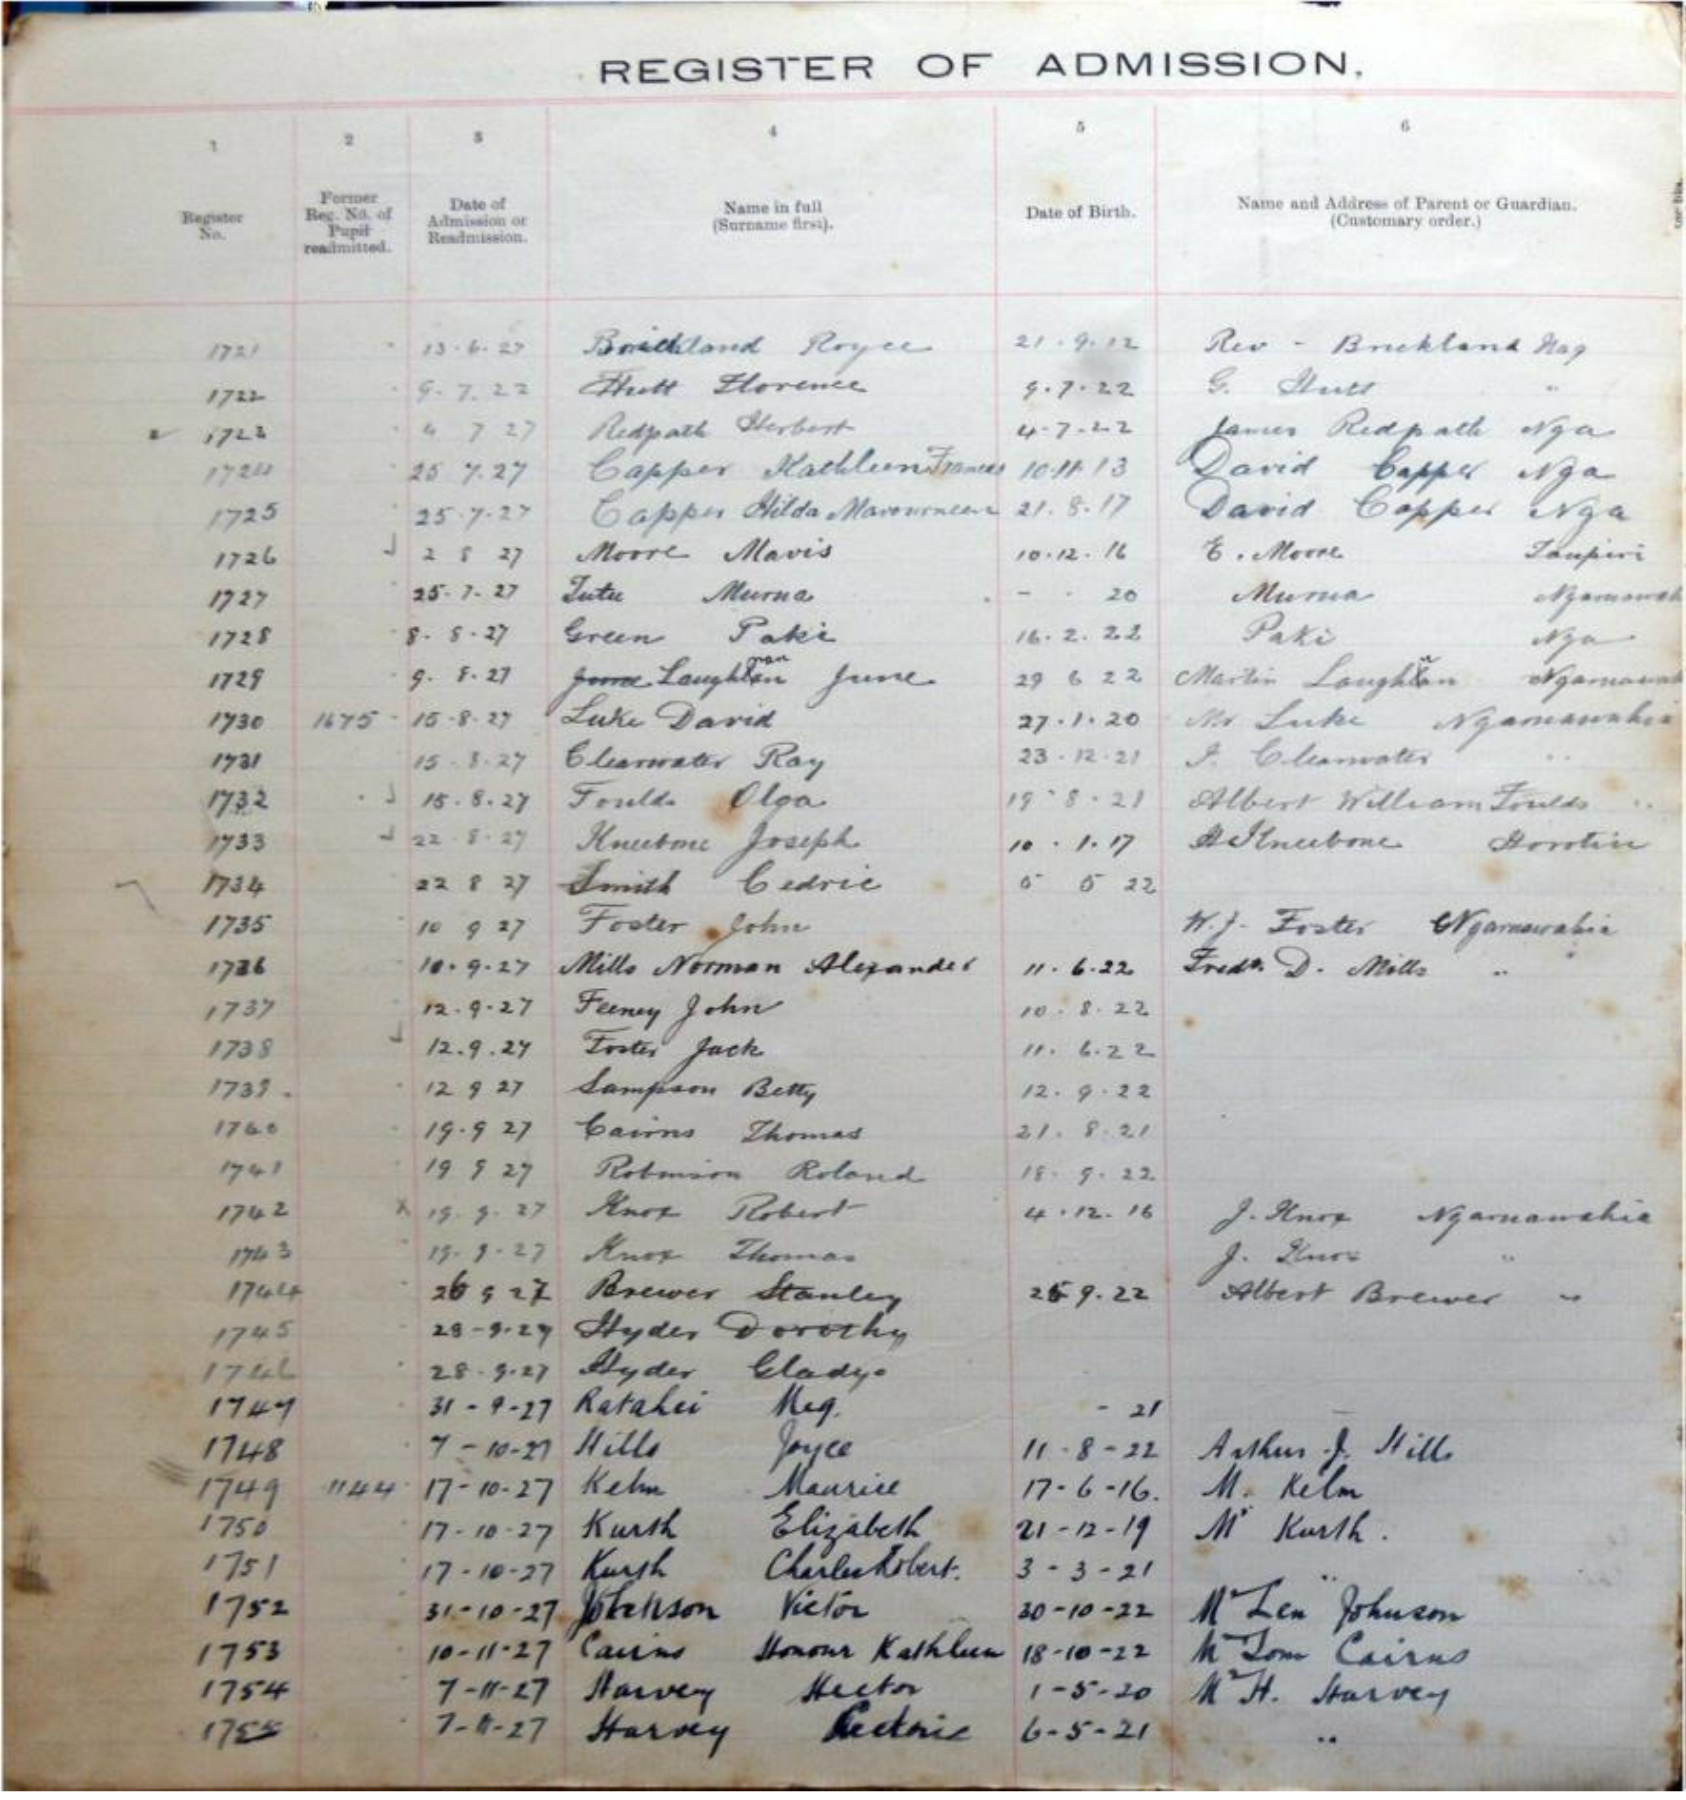 REGISTER OF ADMISSION.
1 2 3 4 5 6
Register No. Former Reg. No. of Pupil readmitted. Date of Admission or Readmission. Name in full (Surname first). Date of Birth. Name and Address of Parent or Guardian. (Customary order.)
1721 13.6.27 Brickland Royce 21.9.12 Rev - Brickland Nag
1722 9.7.22 Hutt Florence 9.7.22 G. Hutt "
1723 4 7 27 Redpath Herbert 4.7.22 James Redpath Nga
1724 25 7.27 Capper Kathleen Frances 10.11.13 David Capper Nga
1725 25.7.27 Capper Hilda 21.8.17 David Capper Nga
1726 2 8 27 Moore Mavis 10.12.16 E. Moore Taupiri
1727 25.7.27 Tutu Murua - . 20 Murua Ngaruawah
1728 8.8.27 Green Paki 16.2.22 Paki Nga
1729 9.8.27 Laughlan June 29 6 22 Martin Laughlan Ngaruawah
1730 1675 15.8.27 Luke David 27.1.20 Mr Luke Ngaruawahia
1731 15.8.27 Clearwater Ray 23.12.21 Clearwater "
1732 15.8.27 Foulds Olga 19.8.21 Albert William Foulds "
1733 22.8.27 Kneebone Joseph 10.1.17 Kneebone Horotiu
1734 22 8 27 Smith Cedric 5 5 22
1735 10 9 27 Foster John W.J. Foster Ngaruawahia
1736 10.9.27 Mills Norman Alexander 11.6.22 Fredk. D. Mills "
1737 12.9.27 Feeney John 10.8.22
1738 12.9.27 Foster Jack 11.6.22
1739. 12 9 27 Sampson Betty 12.9.22
1740 19.9 27 Cairns Thomas 21.8.21
1741 19 9 27 Robinson Roland 18.9.22
1742 x 19.9.27 Knox Robert 4.12.16 J. Knox Ngaruawahia
1743 19.9.27 Knox Thomas J. Knox "
1744 26 9 27 Brewer Stanley 26 9.22 Albert Brewer "
1745 28-9.27 Hyder Dorothy
1746 28.9.27 Hyder Gladys
1747 31-9-27 Ratahei Meg. - 21
1748 7-10-27 Hills Joyce 11-8-22 Arthur J. Hills
1749 1144 17-10-27 Kelm Maurice 17-6-16. M. Kelm
1750 17-10-27 Kurth Elizabeth 21-12-19 Mr Kurth.
1751 17-10-27 Kurth Charles Robert. 3-3-21 "
1752 31-10-27 Johnson Victor 30-10-22 Mr Len Johnson
1753 10-11-27 Cairns Honour Kathleen 18-10-22 Mr Tom Cairns
1754 7-11-27 Harvey Hector 1-5-20 Mr H. Harvey
1755 7-11-27 Harvey 6-5-21 "